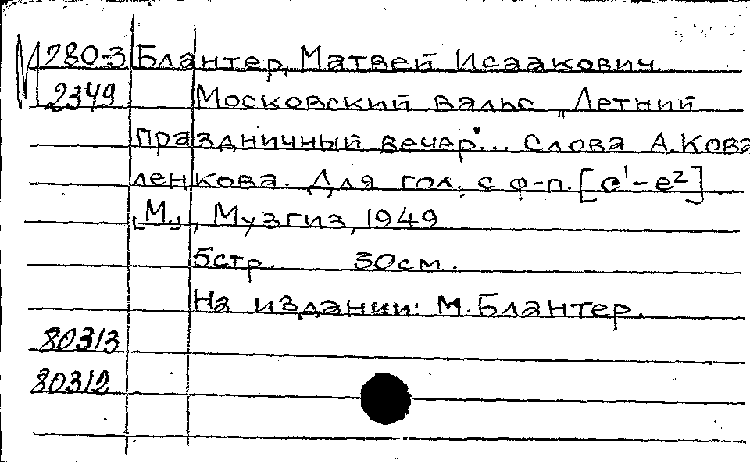 М 280-3 Блантер, Матвей Исаакович
2349 Московский вальс „Летний
праздничный вечер"... Слова А. Кова
ленкова. Для гол. с ф-п. [c¹-e²]
[М.], Музгиз, 1949
5стр. 30см.
На издании: М. Блантер.
80313
80312